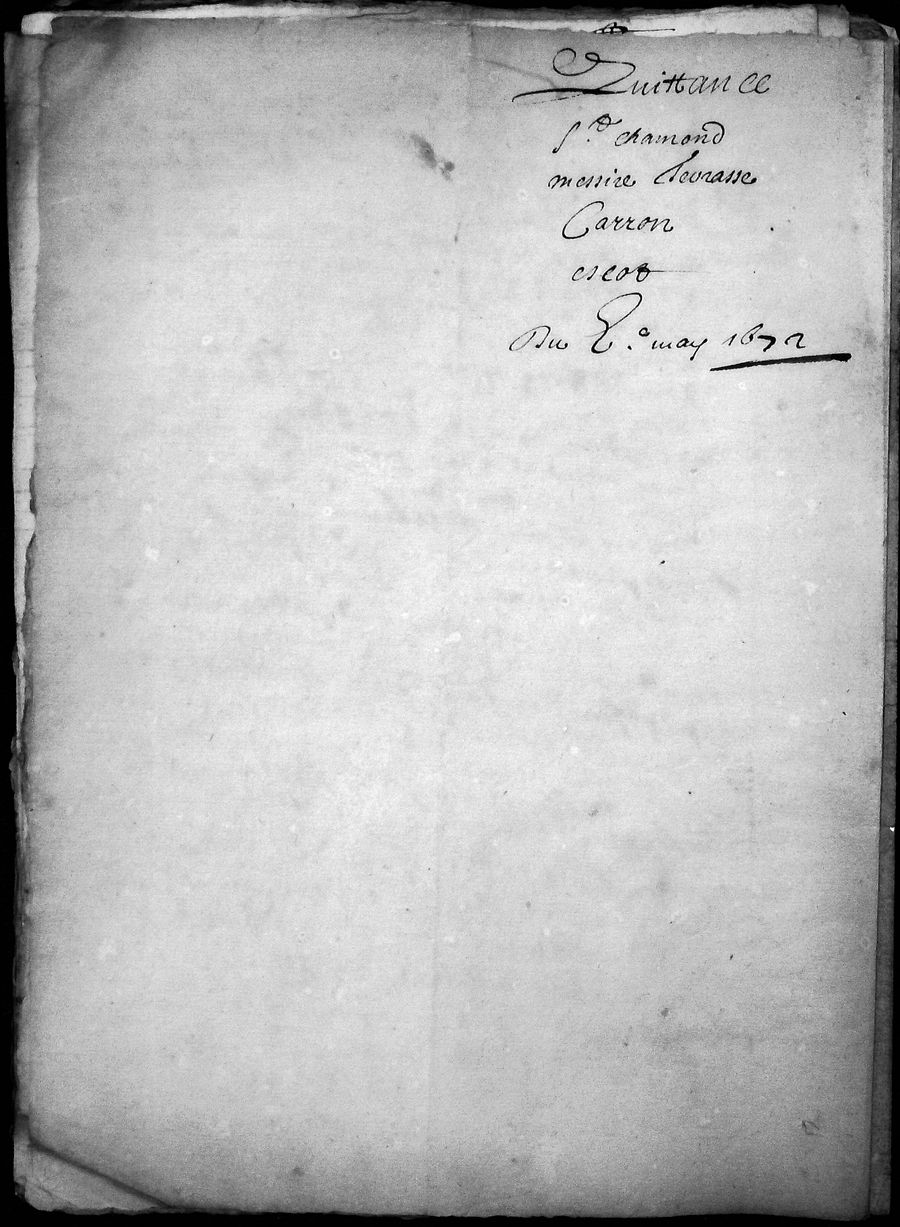 Quittance
St. chamond
messire Levrasse
Carron
escot
Du 2.e may 1672